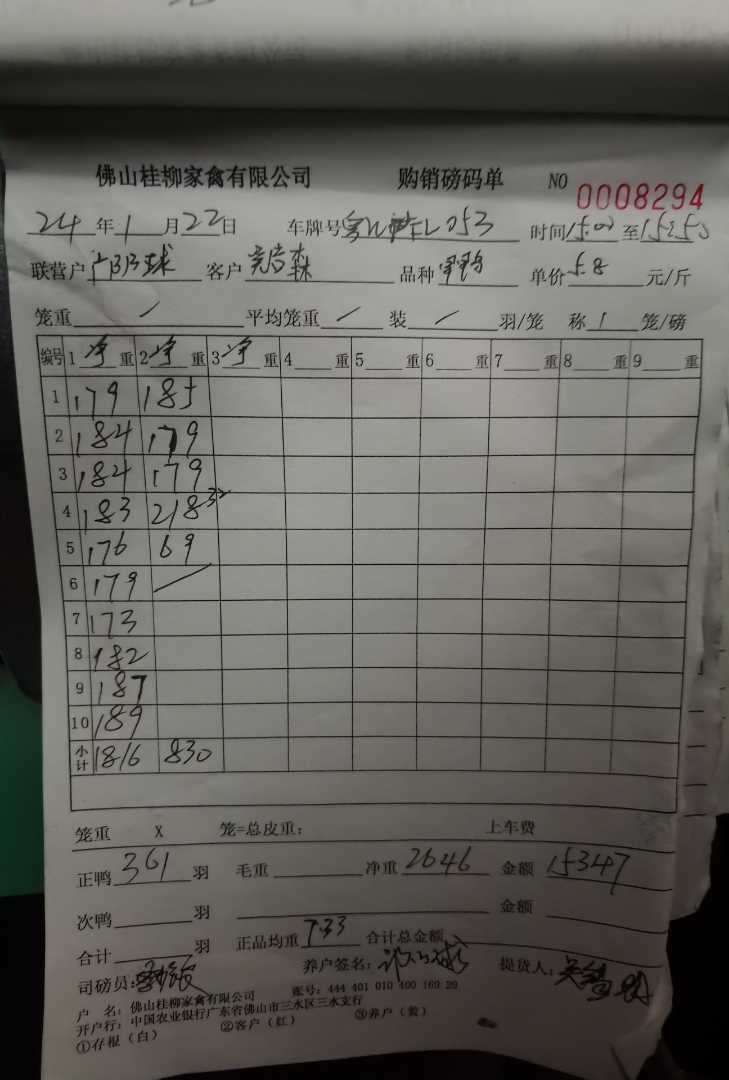 佛山桂柳家禽有限公司 购销磅码单 NO 0008294
24年1月22日 车牌号 L053 时间15:00至15:50
联营户 球 客户 森 品种 单价5.8元/斤
笼重/ 平均笼重/ 装/羽/笼 称1笼/磅
编号 1净重 2净重 3净重 4重 5重 6重 7重 8重 9重
1 179 185
2 184 179
3 184 179
4 183 218 32
5 176 69
6 179 /
7 173
8 182
9 187
10 189
小计 1816 830
笼重 X 笼=总皮重: 上车费
正鸭361羽 毛重 净重2646 金额15347
次鸭 羽 金额
合计 羽 正品均重7.33 合计总金额
司磅员: 养户签名: 提货人:
户 名: 佛山桂柳家禽有限公司 账号: 444 401 010 400 169 20
开户行: 中国农业银行广东省佛山市三水区三水支行
①存根(白) ②客户(红) ③养户(黄)